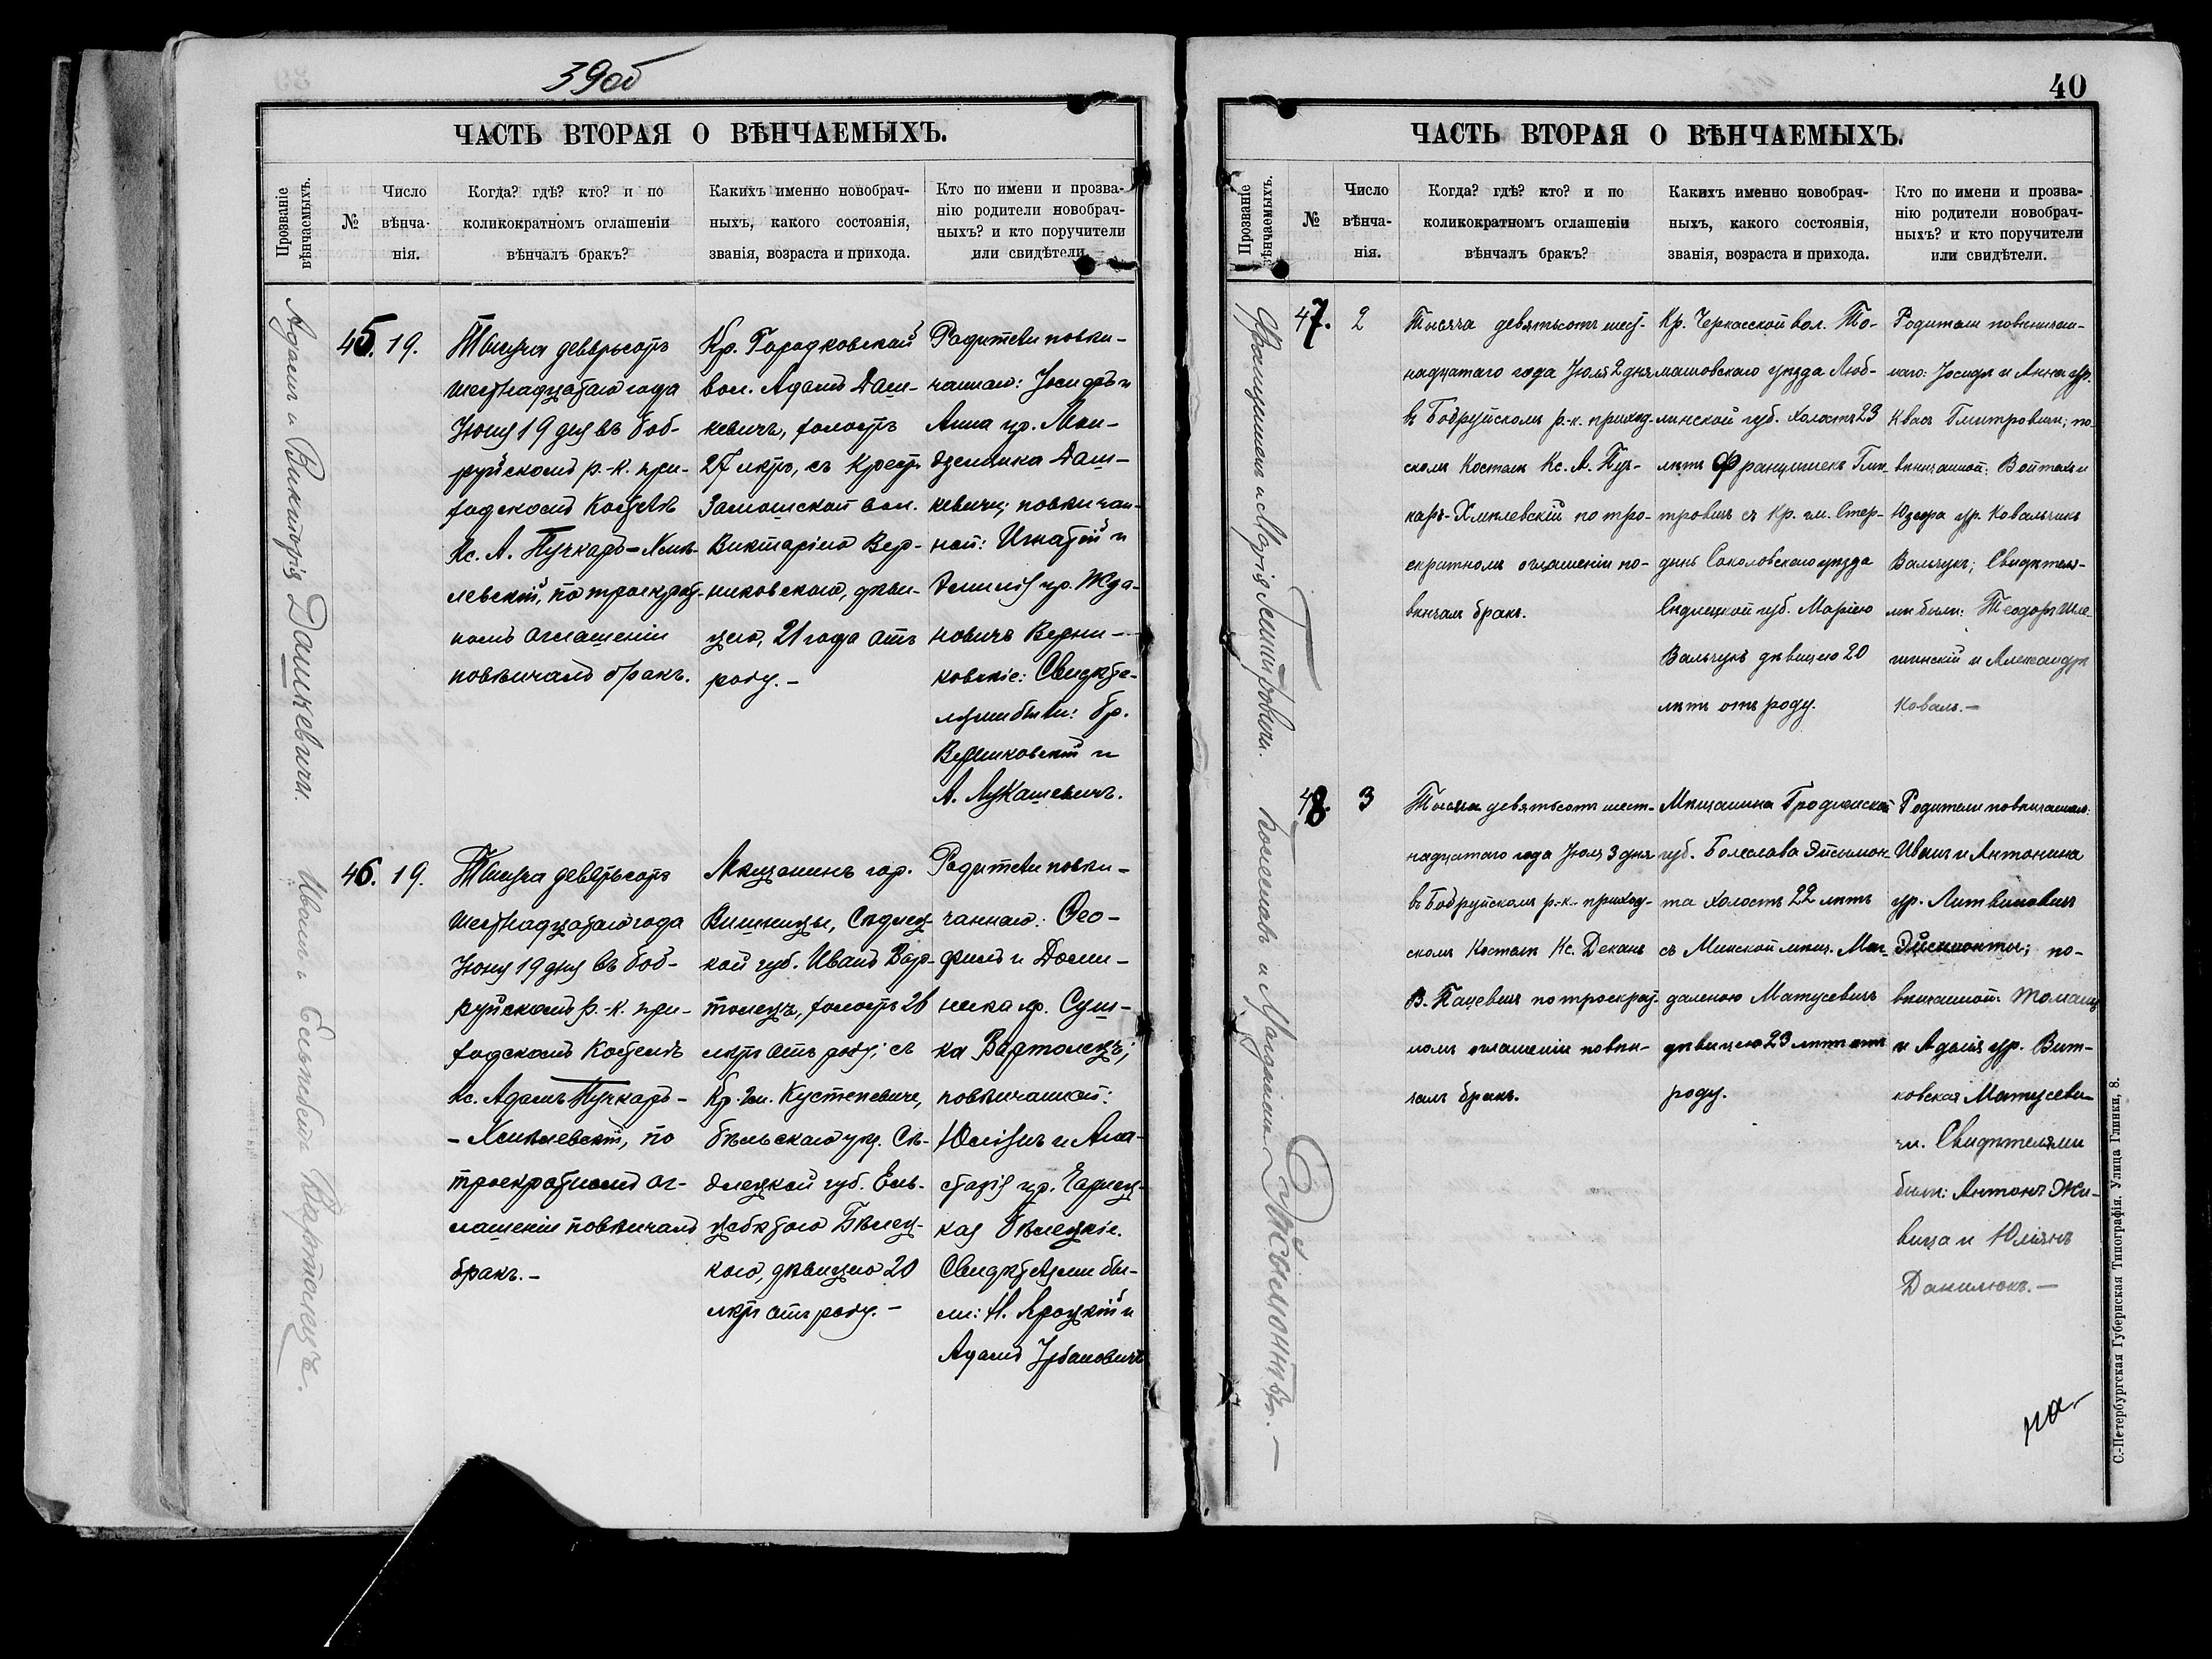 39об
ЧАСТЬ ВТОРАЯ О ВѢНЧАЕМЫХЪ.
Прозваніе вѣнчаемыхъ.
№
Число вѣнча-нія.
Когда? гдѣ? кто? и по
коликократномъ оглашеніи
вѣнчалъ бракъ?
Какихъ именно новобрач-
ныхъ, какого состоянія,
званія, возраста и прихода.
Кто по имени и прозва-
нію родители новобрач-
ныхъ? и кто поручители
или свидѣтели.
Адамъ и Викторія Дашкевичи.
45.
19.
Тысяча девятьсотъ
шестнадцатаго года
Іюня 19 дня въ Боб-
руйскомъ р.-к. при-
ходскомъ Костелѣ
Кс. А. Пучкаръ-Хмѣ-
левскій, по троекрат-
номъ оглашеніи
повѣнчалъ бракъ.
Кр. Городковской
вол. Адамъ Даш-
кевичъ, холостъ
27 лѣтъ, съ Крест.
Замошской вол.
Викторіею Вер-
никовскою, дѣви-
цею, 21 года отъ
роду.-
Родители повѣн-
чаннаго: Іосифъ и
Анна ур. Мон-
дзелявка Даш-
кевичи; повѣнчан-
ной: Игнатій и
Эмилія ур. Жда-
новичъ Верни-
ковскіе: Свидѣте-
лями были: Бр.
Верниковскій и
А. Лукашевичъ.
Иванъ и Ельжбета Вартолецъ.
46.
19.
Тысяча девятьсотъ
шестнадцатаго года
Іюня 19 дня въ Боб-
руйскомъ р.-к. при-
ходскомъ Костелѣ
Кс. Адамъ Пучкаръ-
-Хмѣлевскій, по
троекратномъ ог-
лашеніи повѣнчалъ
бракъ.-
Мѣщанинъ гор.
Вишницы, Сѣдлец-
кой губ. Иванъ Вар-
толецъ, холостъ 26
лѣтъ отъ роду; съ
Кр. гм. Кустеневиче,
бѣльскаго уѣз. Сѣ-
длецкой губ. Ель-
жбѣтою Бѣлец-
кою, дѣвицею 20
лѣтъ отъ роду.-
Родители повѣн-
чаннаго: Ѳео-
филъ и Доми-
ника ур. Суш-
ка Вартолецъ;
повѣнчанной:
Юліянъ и Ана-
стазія ур.
кая Бѣлецкіе.
Свидѣтелями бы-
ли: Н. Яроцкій и
Адамъ Урбановичъ
40
ЧАСТЬ ВТОРАЯ О ВѢНЧАЕМЫХЪ.
Прозваніе вѣнчаемыхъ.
№
Число вѣнча-нія.
Когда? гдѣ? кто? и по
коликократномъ оглашеніи
вѣнчалъ бракъ?
Какихъ именно новобрач-
ныхъ, какого состоянія,
званія, возраста и прихода.
Кто по имени и прозва-
нію родители новобрач-
ныхъ? и кто поручители
или свидѣтели.
Францишекъ и Марія Гмитровичи.
47.
2
Тысяча девятьсотъ шест-
надцатаго года Іюля 2 дня
въ Бобруйскомъ р.-к. приход-
скомъ Костелѣ Кс. А. Пуч-
каръ-Хмѣлевскій по тро-
екратномъ оглашеніи по-
вѣнчалъ бракъ.
Кр. Черкасской вол. То-
машовскаго уѣзда Люб-
линской губ. холостъ 23
лѣтъ Францишекъ Гми-
тровичъ съ Кр. гм. Стер-
дынь Соколовскаго уѣзда
Сѣдлецкой губ. Маріею
Вальчукъ дѣвицею 20
лѣтъ отъ роду.
Родители повѣнчан-
наго: Іосифъ и Анна ур.
Квасъ Гмитровичи; по-
вѣнчанной: Войтехъ и
Юзефа ур. Ковальчикъ
Вальчукъ; Свидѣтеля-
ми были: Теодоръ
и Александръ
Коваль.-
Болеславъ и Магдалина Эйсымонтъ.-
48.
3
Тысяча девятьсотъ шест-
надцатаго года Іюля 3 дня
въ Бобруйскомъ р.-к. приход-
скомъ Костелѣ Кс. Деканъ
В. Пацевичъ по троекрат-
номъ оглашеніи повѣн-
чалъ бракъ.
Мѣщанина Гродненской
губ. Болеслава Эйсимон-
та холостъ 22 лѣтъ
съ Минской мѣщ. Маг-
даленою Матусевичъ
дѣвицею 23 лѣтъ отъ
роду.
Родители повѣнчанаго:
Иванъ и Антонина
ур. Литвиновичъ
Эйсимонты; по-
вѣнчанной: Томашъ
и Аделія ур. Вит-
ковская Матусеви-
чи. Свидѣтелями
были: Антонъ Жи-
вица и Юліянъ
Данилюкъ.-
на-
С.-Петербургская Губернская Типографія. Улица Глинки, 8.